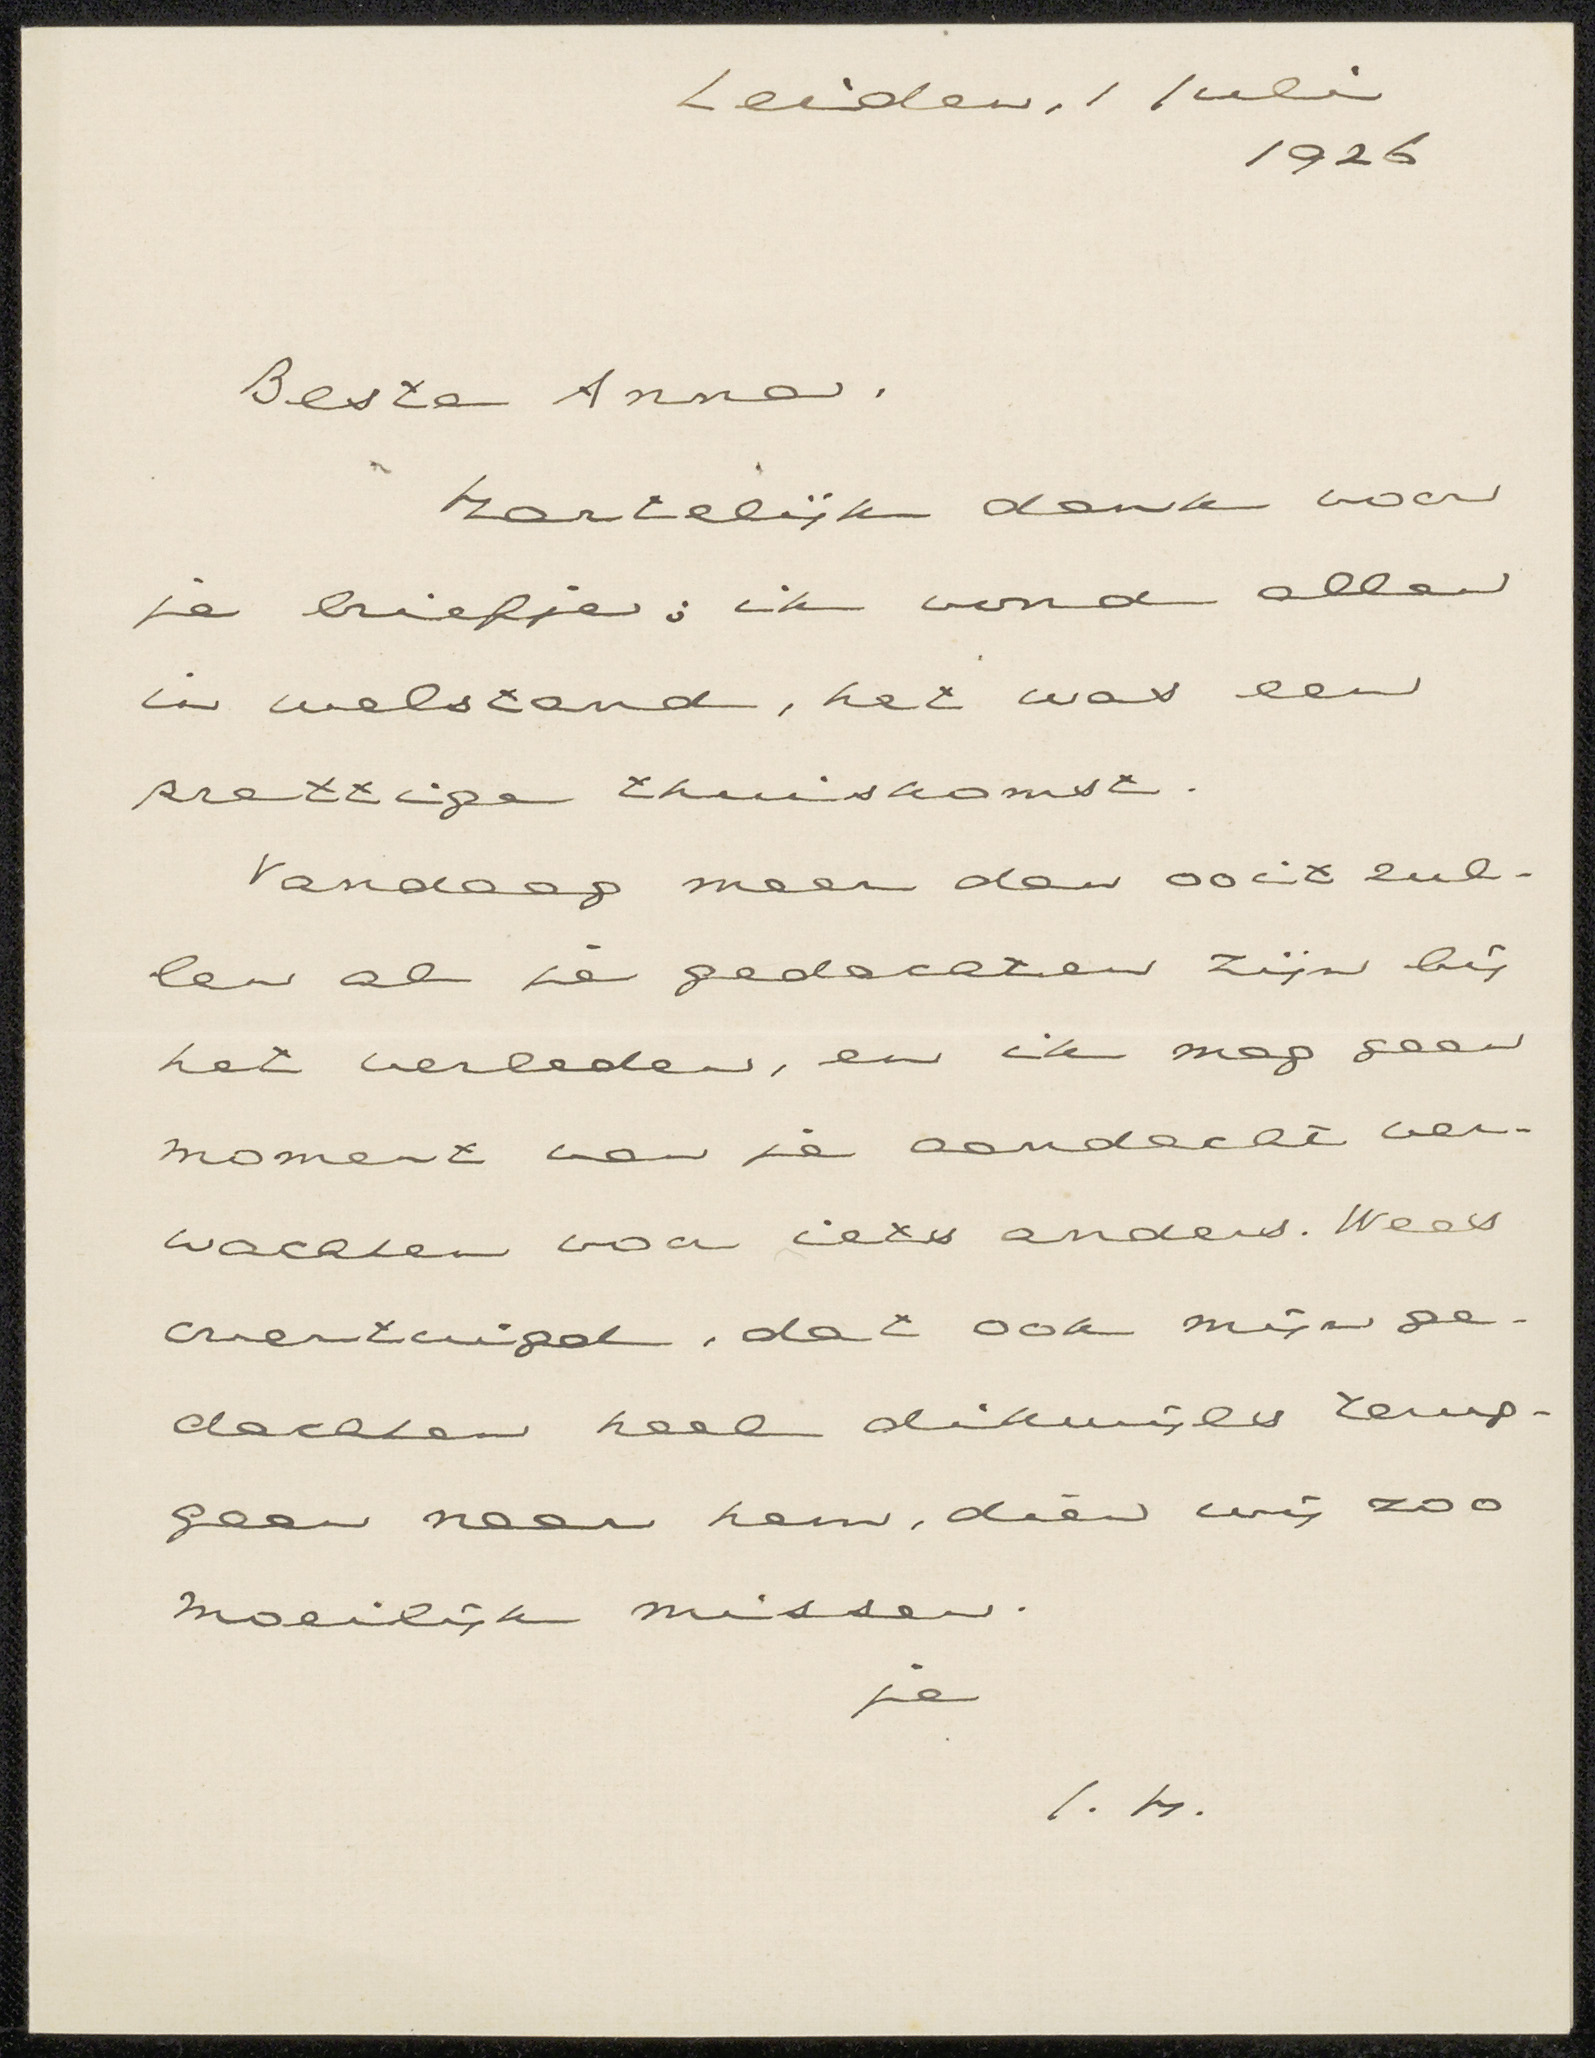 Leiden, 1 Juli
1926
Beste Anna,
Hartelijk dank voor
je briefje; ik vond allen
in welstand, het was een
prettige thuiskomst.
Vandaag meer dan ooit zul-
len al je gedachten zijn bij
het verleden, en ik mag geen
moment van je aandacht ver-
wachten voor iets anders. Wees
overtuigd, dat ook mijn ge-
dachten heel dikwijls terug-
gaan naar hem, dien wij zoo
moeilijk missen.
je
J. H.